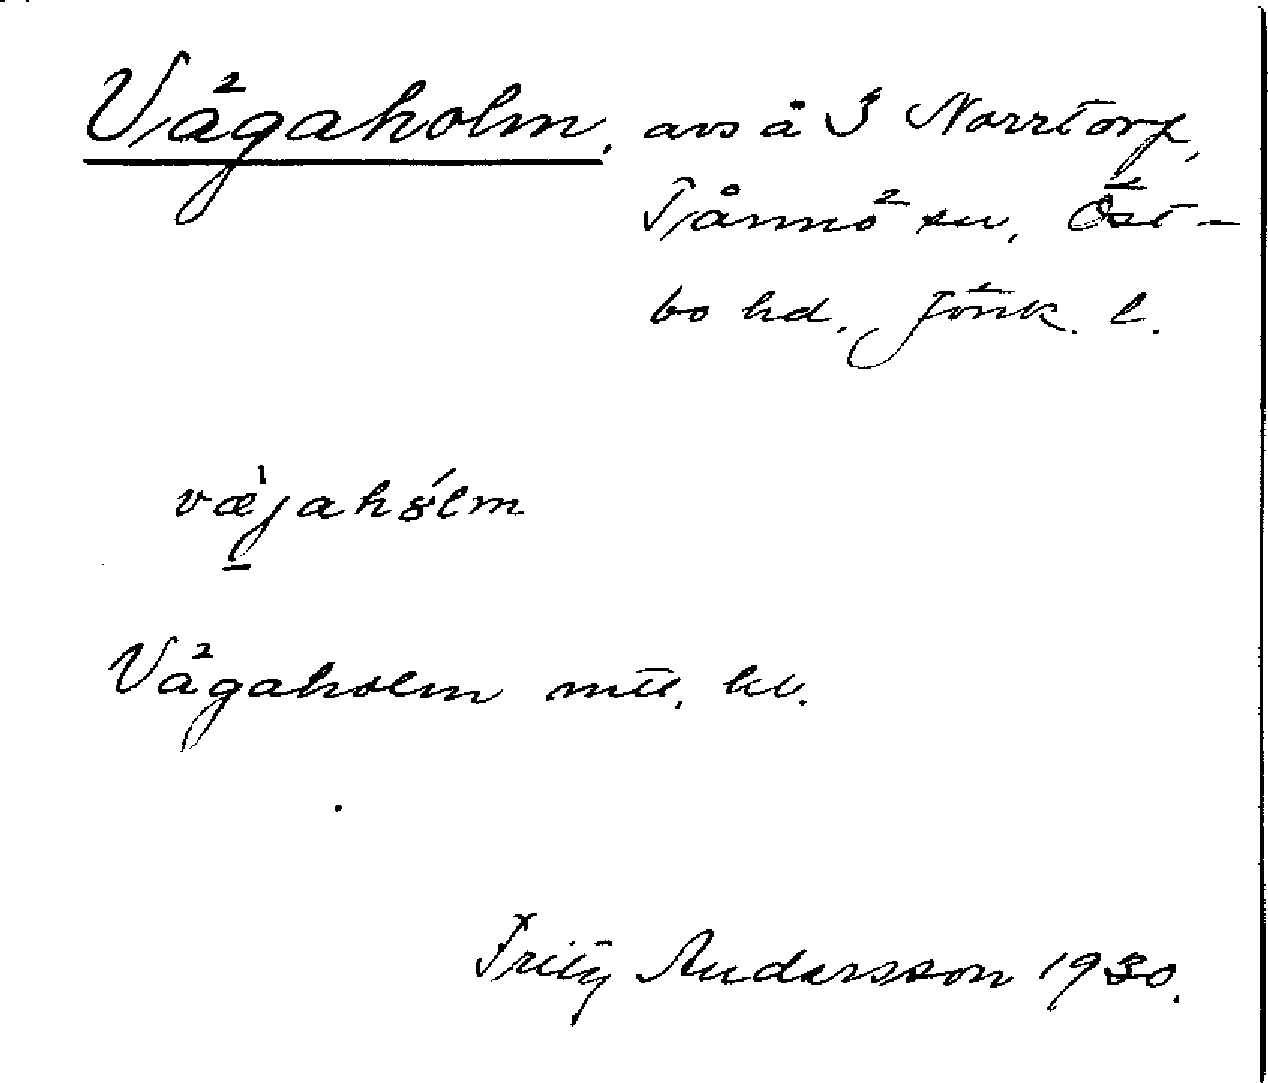 Vägaholm, avs å S Norrtorp,
Tånnö sn, Öst-
bo hd, Jönk. l.
væjahólm
Vägaholm mtl.
Fritz Andersson 1930.